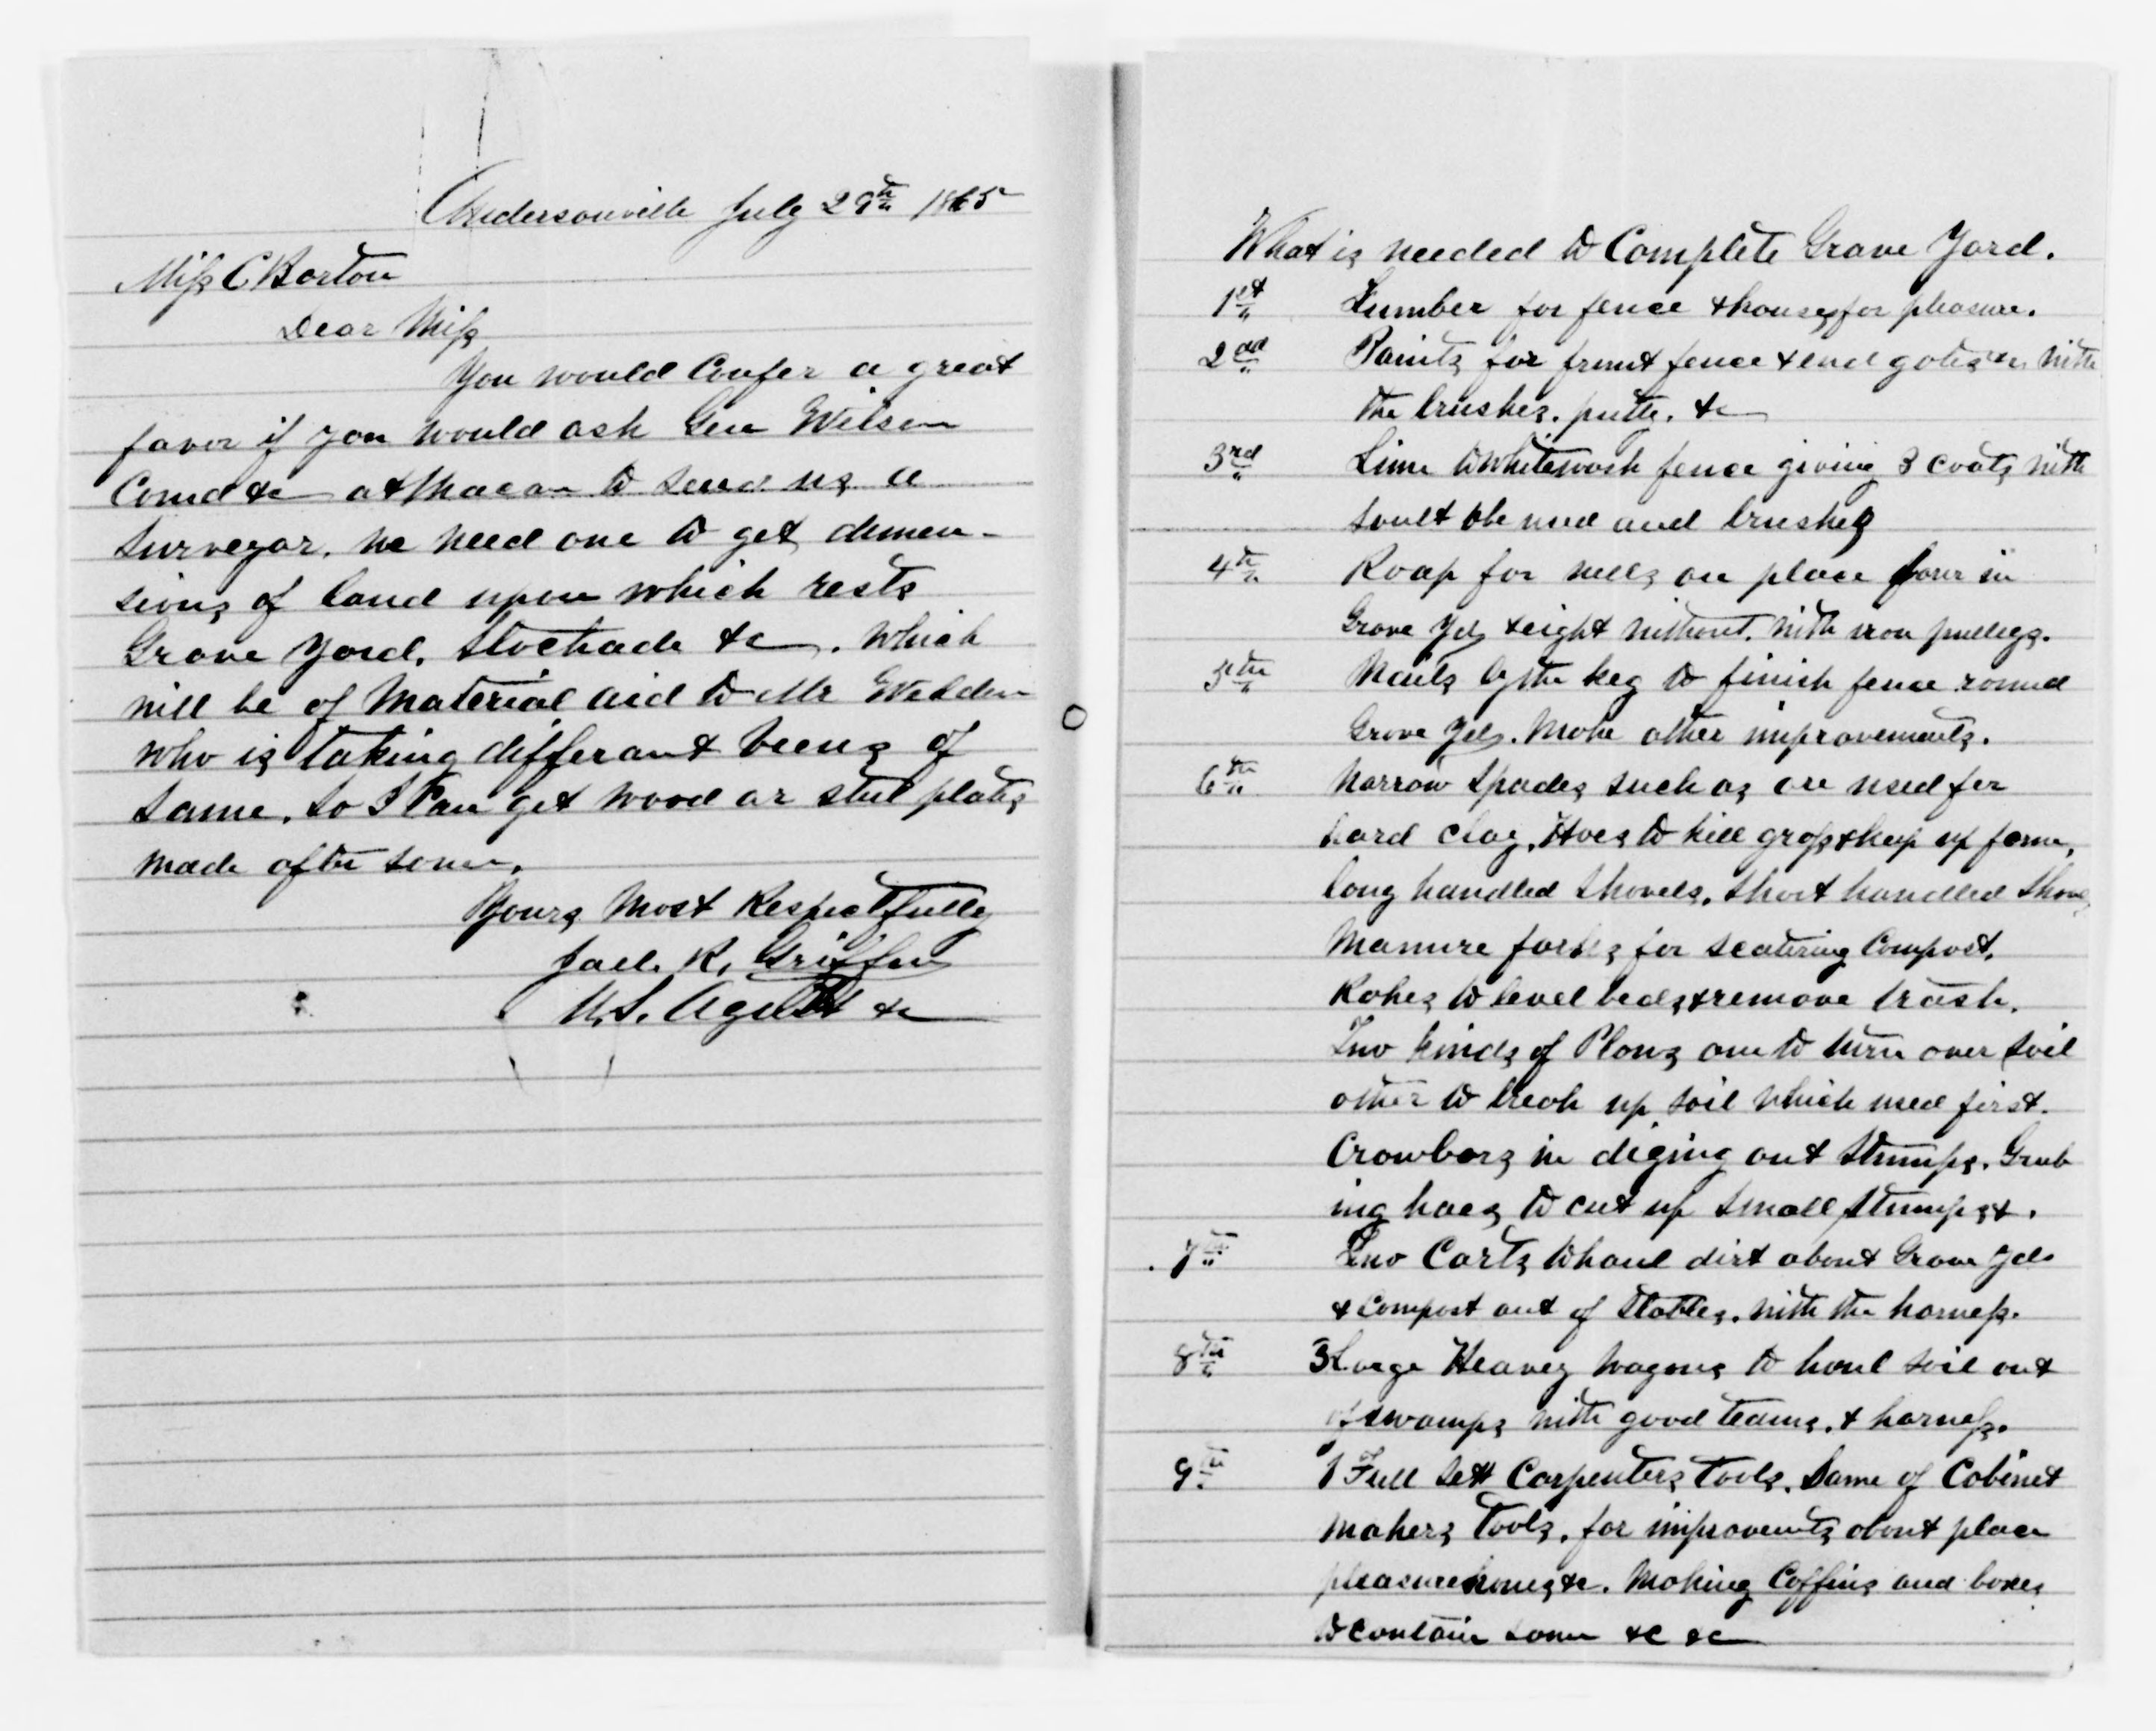 Andersonville July 29th 1865
Miss C Barton
Dear Miss
You would Confer a great
favor if you would ask Gen Wilson
Comd &c at Macon to send us a
Surveyor. we need one to get dimen-
sions of land upon which rests
Grave Yard, Stockade &c. Which
will be of Material aid to Mr
who is taking differant views of
Same. So I Can get wood or steel plates
made after same.
Yours Most Respectfully
Jas. R. Griffin
U.S. Agent &c
What is needed to Complete Grave Yard.
1st Lumber for fence & houses for pleasure.
2nd Paints for front fence & end gates with
the brushes. putty. &c
3rd Lime to whitewash fence giving 3 coats with
to be used and brushes
4th Roap for wells on place four in
Grave Yd & eight without. with iron pulleys.
5th Nails by the keg to finish fence round
Grave Yd. Make other improvements.
6th Narrow Spades such as are used for
hard clay. Hoes to kill grass & keep up form,
long handled Shovels. Short handled
Manure forks for scatering Compost.
Rakes to level beds & remove trash.
Two kinds of Plows one to turn over soil
other to break up soil which used first.
Crowbars in diging out Stumps. Grub
ing hoes to cut up small stumps &.
7th Two Carts to haul dirt about Grave Yd
& compost out of Stables. with the harness.
8th 3 Large Heavey Wagons to haul soil out
of swamps with good teams. & harness.
9th 1 Full Sett Carpenters Tools. Same of Cabinet
Makers Tools. for improvements about place
pleasure houses &c. Making Coffins and boxes
to contain same &c &c